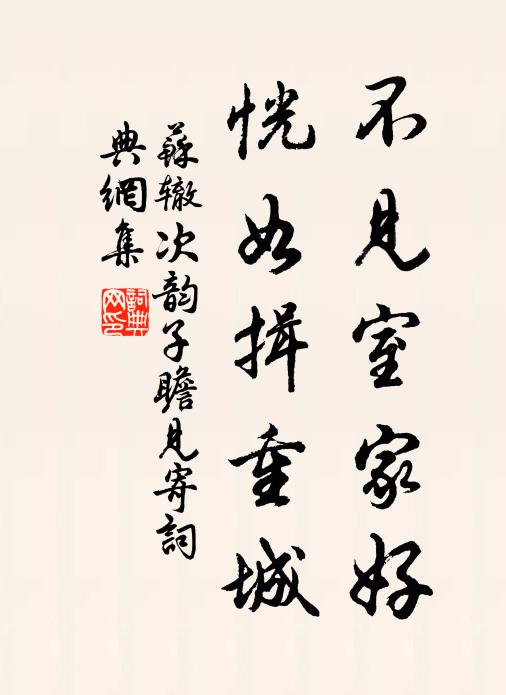 不见室家好
恍如揖重城
蘇辙次韵子瞻見寄詞
典網集
詞典网印